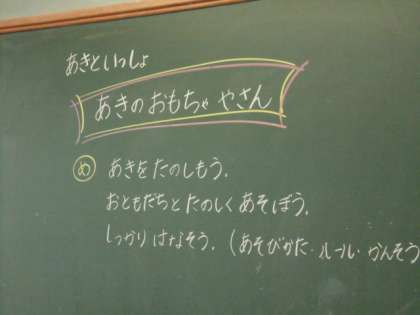 あきといっしょ
あきのおもちゃやさん
め あきをたのしもう。
おともだちとたのしくあそぼう。
しっかりはなそう。(あそびかた・ルール・かんそう